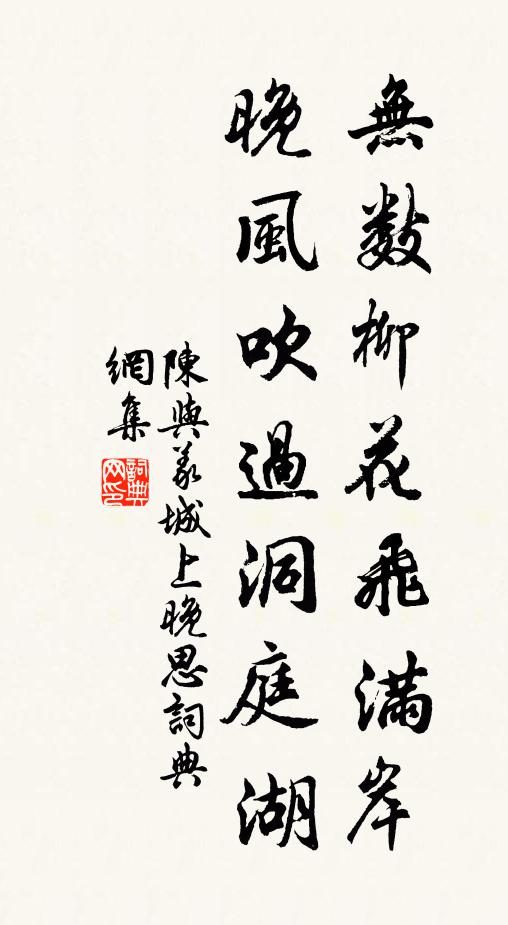 無數柳花飛滿岸
晚風吹過洞庭湖
陳與義城上晚思詞典
網集
詞典網印